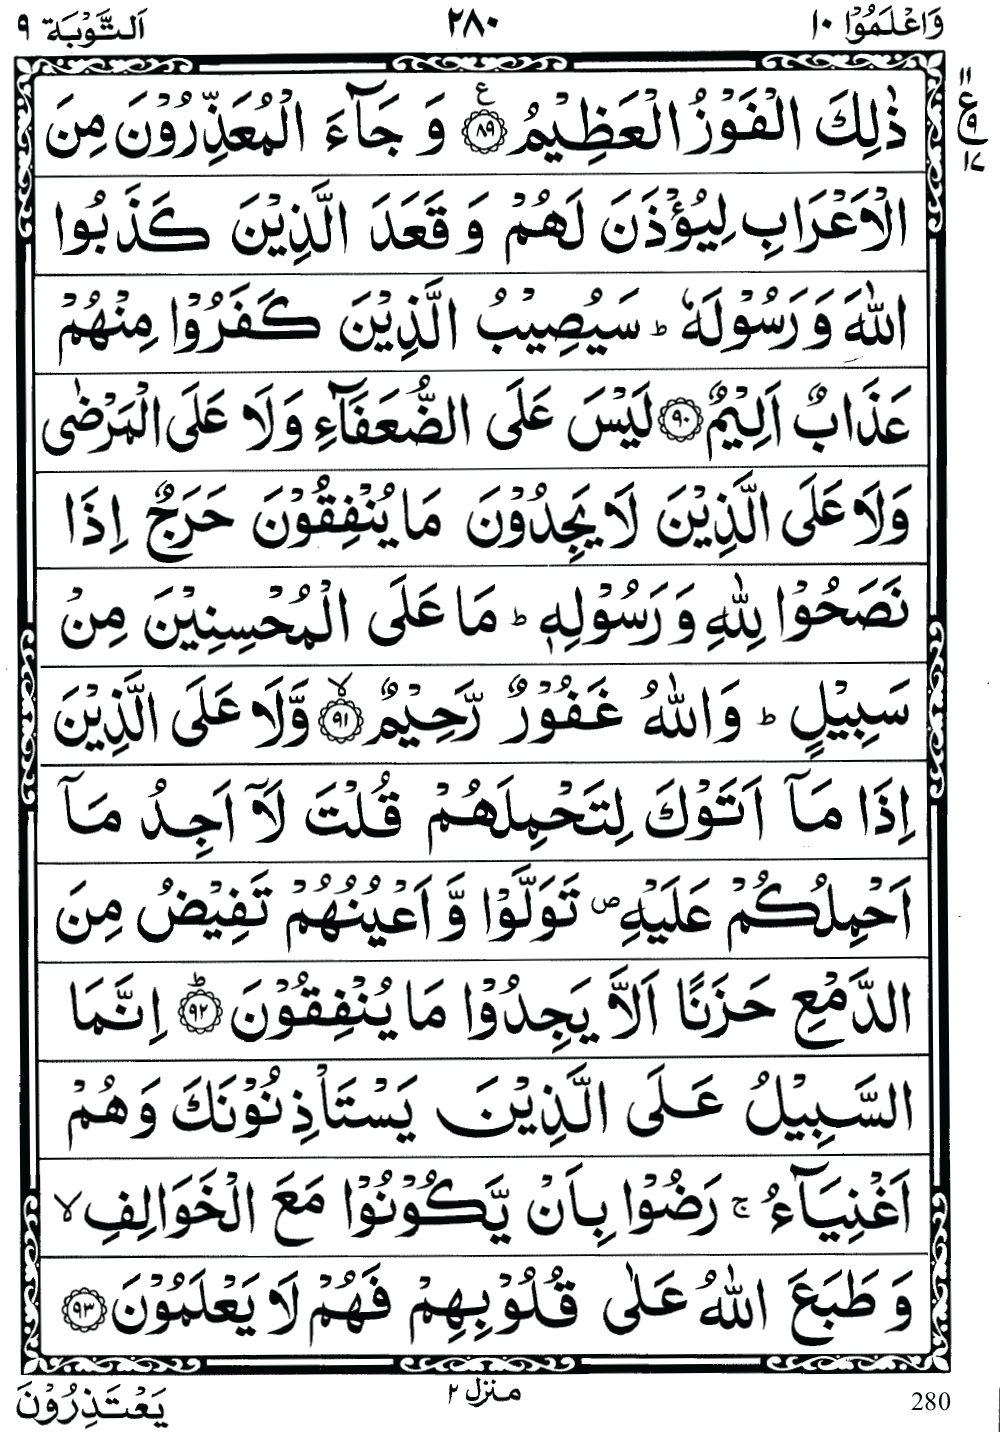 وَاعْلَمُوْا ١٠ ٢٨٠ اَلتَّوْبَة ٩
ذٰلِكَ الْفَوْزُ الْعَظِيْمُ ﴿٨٩﴾ ع وَ جَآءَ الْمُعَذِّرُوْنَ مِنَ
١١ ع ٩ ١٧
الْاَعْرَابِ لِيُؤْذَنَ لَهُمْ وَ قَعَدَ الَّذِيْنَ كَذَبُوا
اللّٰهَ وَ رَسُوْلَهٗ ؕ سَيُصِيْبُ الَّذِيْنَ كَفَرُوْا مِنْهُمْ
عَذَابٌ اَلِيْمٌ ﴿٩٠﴾ لَيْسَ عَلَى الضُّعَفَآءِ وَلَا عَلَى الْمَرْضٰى
وَلَا عَلَى الَّذِيْنَ لَا يَجِدُوْنَ مَا يُنْفِقُوْنَ حَرَجٌ اِذَا
نَصَحُوْا لِلّٰهِ وَ رَسُوْلِهٖ ؕ مَا عَلَى الْمُحْسِنِيْنَ مِنْ
سَبِيْلٍ ؕ وَاللّٰهُ غَفُوْرٌ رَّحِيْمٌ ﴿٩١﴾ ۙ وَّلَا عَلَى الَّذِيْنَ
اِذَا مَآ اَتَوْكَ لِتَحْمِلَهُمْ قُلْتَ لَآ اَجِدُ مَآ
اَحْمِلُكُمْ عَلَيْهِ ص تَوَلَّوْا وَّ اَعْيُنُهُمْ تَفِيْضُ مِنَ
الدَّمْعِ حَزَنًا اَلَّا يَجِدُوْا مَا يُنْفِقُوْنَ ﴿٩٢﴾ ؕ اِنَّمَا
السَّبِيْلُ عَلَى الَّذِيْنَ يَسْتَاْذِنُوْنَكَ وَهُمْ
اَغْنِيَآءُ ۚ رَضُوْا بِاَنْ يَّكُوْنُوْا مَعَ الْخَوَالِفِ ۙ
وَ طَبَعَ اللّٰهُ عَلٰى قُلُوْبِهِمْ فَهُمْ لَا يَعْلَمُوْنَ ﴿٩٣﴾
280 منزل ٢ يَعْتَذِرُوْنَ